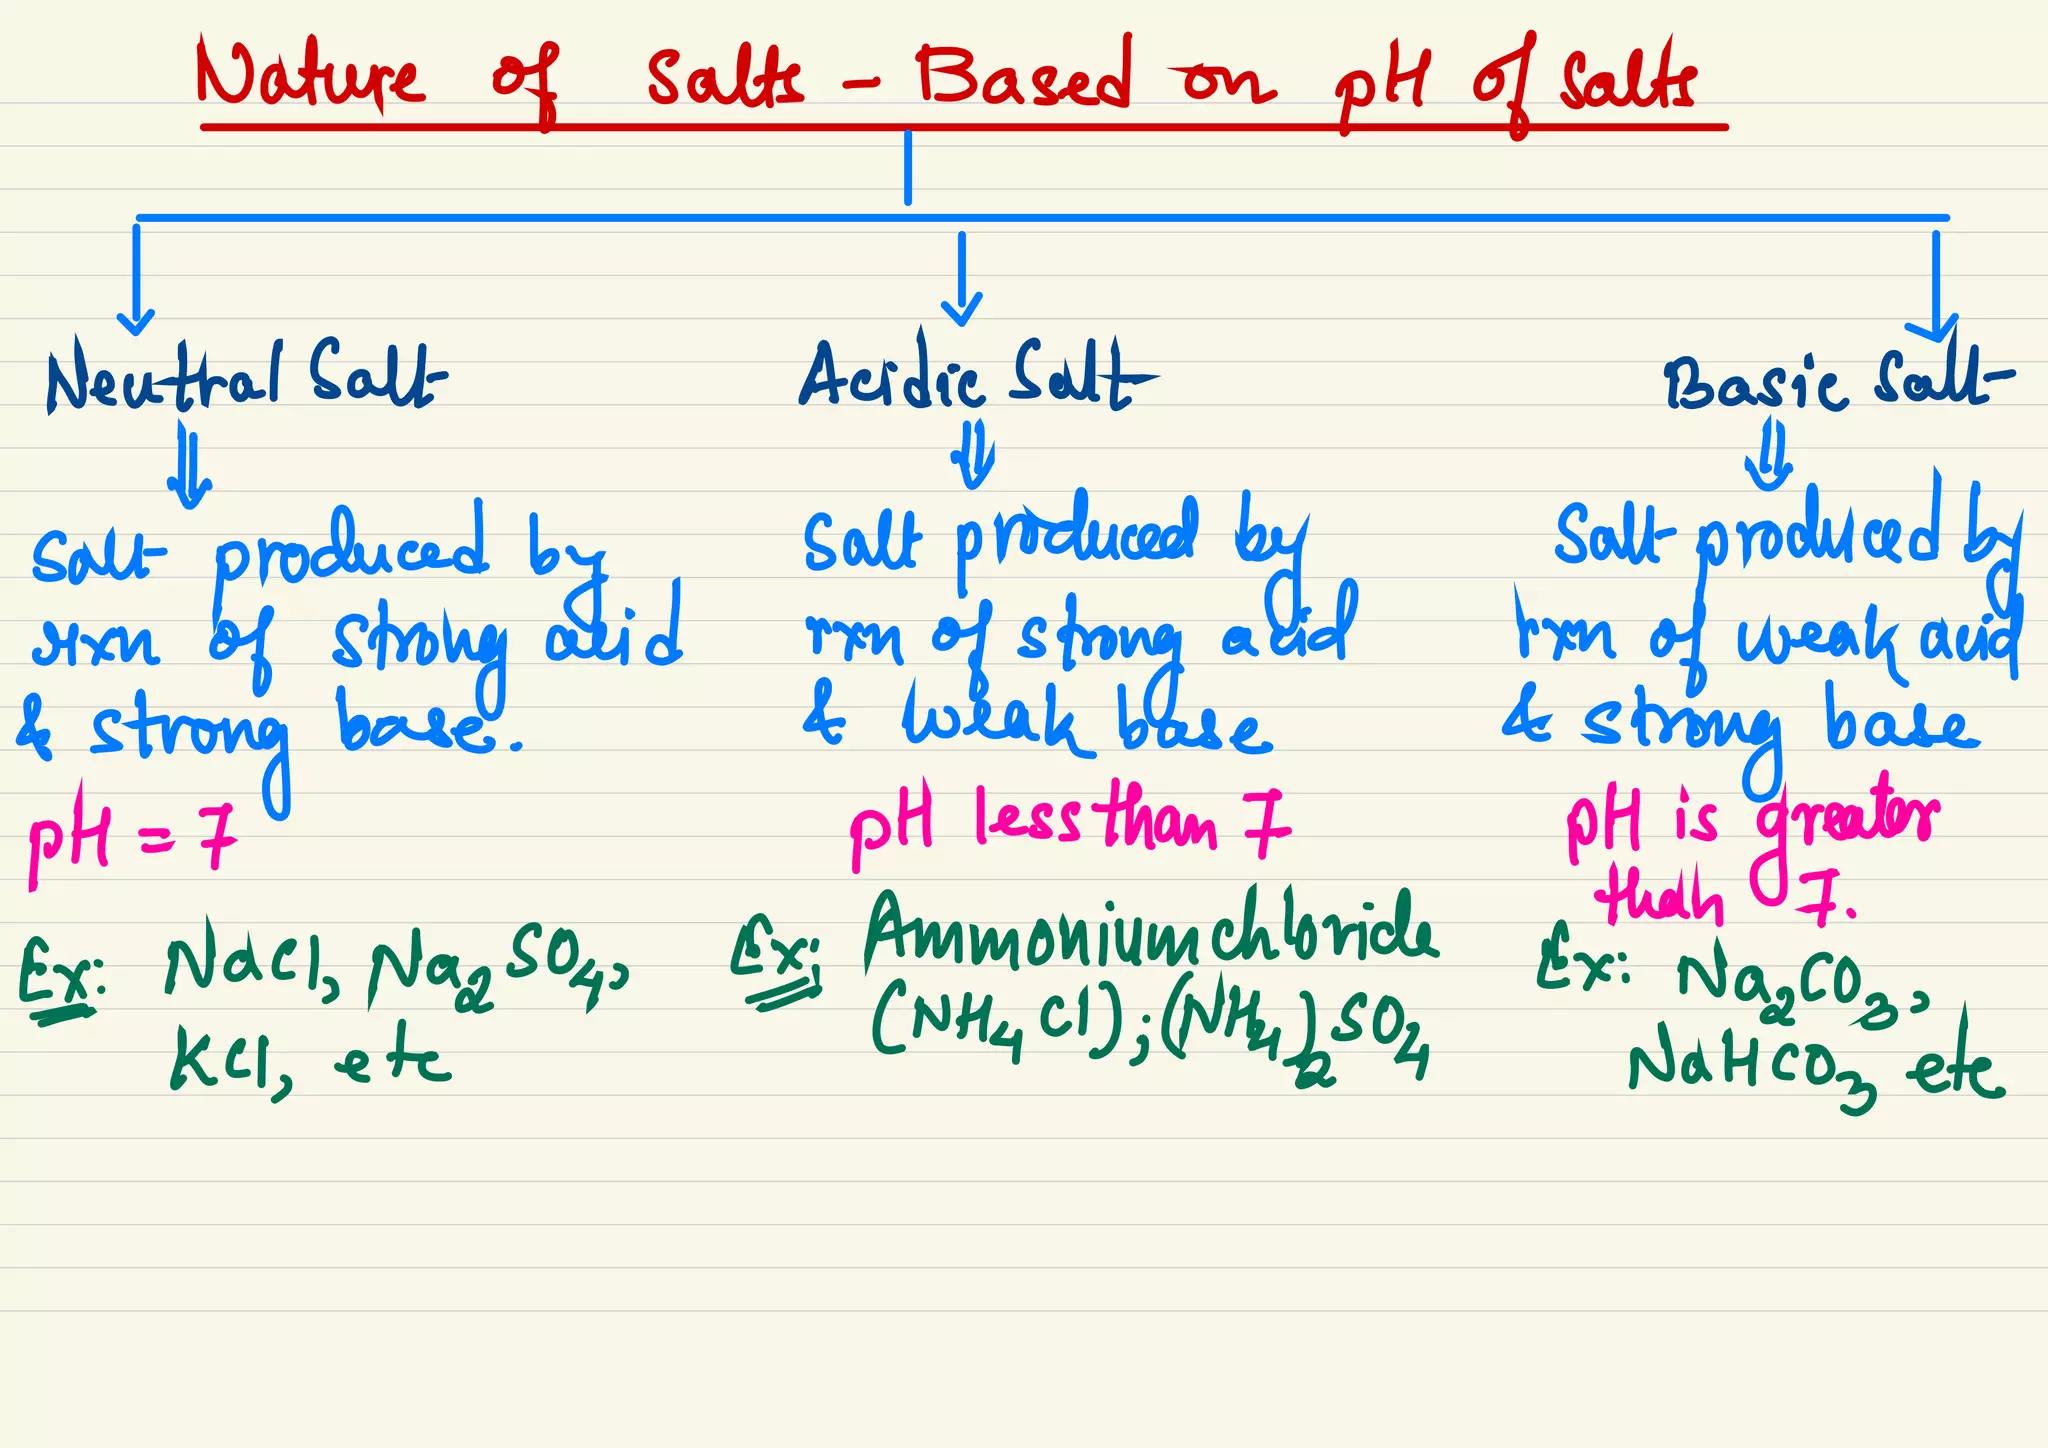 Nature of Salts - Based on pH of Salts
Neutral Salt
Salt produced by
rxn of strong acid
& strong base.
pH = 7
Ex: NaCl, Na₂SO₄,
KCl, etc
Acidic Salt
Salt produced by
rxn of strong acid
& weak base
pH less than 7
Ex: Ammonium chloride
(NH₄Cl); (NH₄)₂SO₄
Basic Salt
Salt produced by
rxn of weak acid
& strong base
pH is greater
than 7.
Ex: Na₂CO₃,
NaHCO₃ etc